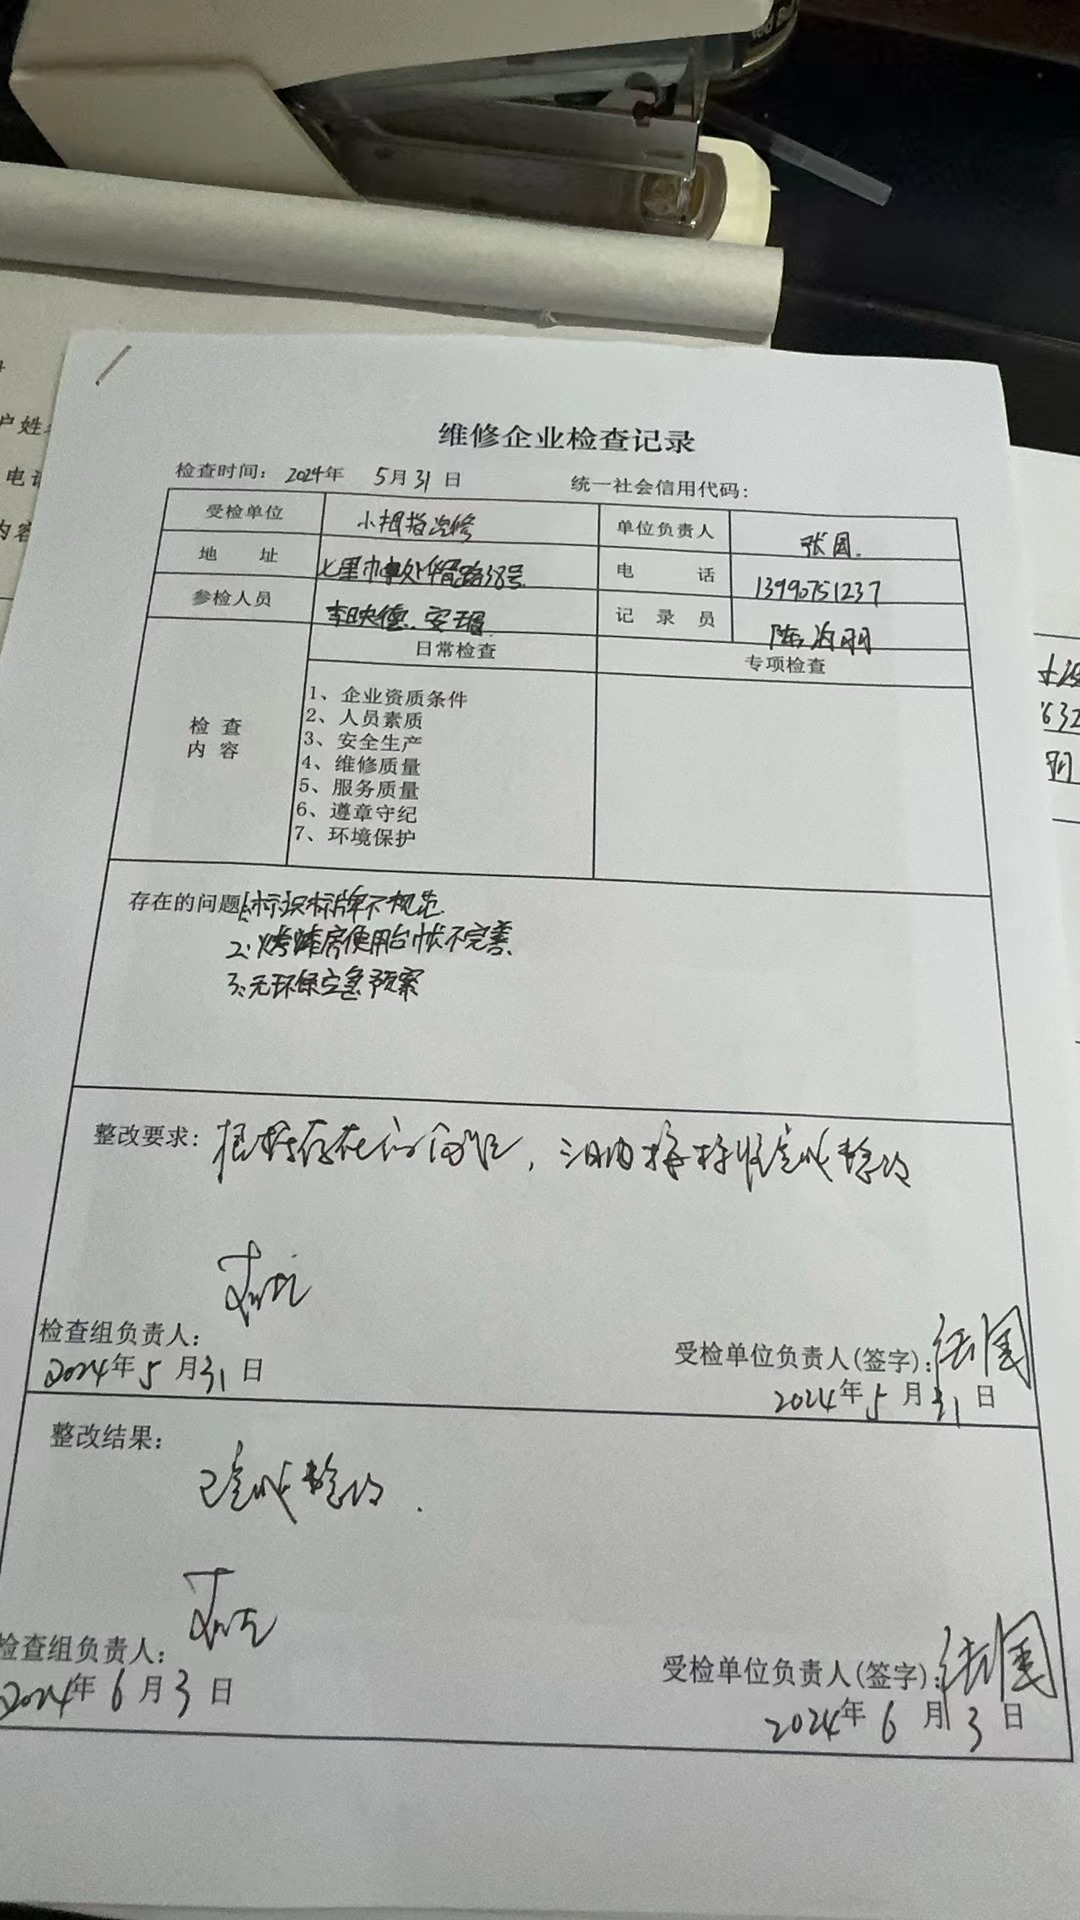 维修企业检查记录
检查时间：2024年 5月31日 统一社会信用代码：
受检单位 小拇指汽修 单位负责人 张国
地 址 七里办事处华胥路38号 电 话 13990751237
参检人员 李映德、安 记 录 员 陈
日常检查 专项检查
检查内容
1、企业资质条件
2、人员素质
3、安全生产
4、维修质量
5、服务质量
6、遵章守纪
7、环境保护
存在的问题 1.标识标牌不规范
2.烤漆房使用台帐不完善
3.无环保应急预案
整改要求：根据存在的问题，三日内完成整改
检查组负责人：
2024年5月31日
受检单位负责人(签字)：张国
2024年5月31日
整改结果：
已完成整改.
检查组负责人：
2024年6月3日
受检单位负责人(签字)：张国
2024年6月3日
户姓
电
内容